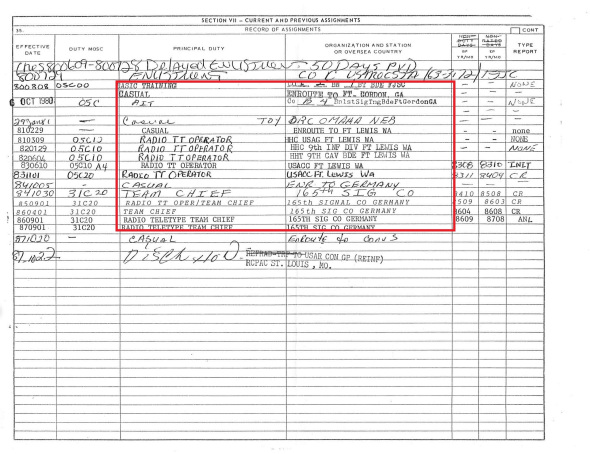 SECTION VII - CURRENT AND PREVIOUS ASSIGNMENTS
35. RECORD OF ASSIGNMENTS CONT
EFFECTIVE DATE DUTY MOSC PRINCIPAL DUTY ORGANIZATION AND STATION OR OVERSEA COUNTRY NON-DUTY DAYS EP YR/MO NON-RATED DAYS EP YR/MO TYPE REPORT
800609-800728 Delayed Enlistment - 50 Days
800729 ENLISTMENT CO
800808 05C00 BASIC TRAINING BDE NONE
CASUAL ENROUTE TO FT. GORDON, GA
6 OCT 1980 05C AIT Co B 4 GA NONE
— Casual TDY DRC OMAHA NEB
810229 — CASUAL ENROUTE TO FT LEWIS WA - - none
810309 05C10 RADIO TT OPERATOR HHC USAG FT LEWIS WA - - NONE
820129 05C10 RADIO TT OPERATOR HHC 9th INF DIV FT LEWIS WA - - NONE
820604 05C10 RADIO TT OPERATOR HHT 9TH CAV BDE FT LEWIS WA
830610 05C10 A4 RADIO TT OPERATOR USACC FT LEWIS WA 8308 8310
831101 05C20 RADIO TT OPERATOR USACC FT. LEWIS WA 8311 8404 CR
841005 — CASUAL ENR TO GERMANY
841030 31C20 TEAM CHIEF 165TH SIG CO 8410 8508 CR
850901 31C20 RADIO TT OPER/TEAM CHIEF 165th SIGNAL CO GERMANY 8509 8603 CR
860401 31C20 TEAM CHIEF 165th SIG CO GERMANY 8604 8608 CR
860901 31C20 RADIO TELETYPE TEAM CHIEF 165TH SIG CO GERMANY 8609 8708 ANL
870901 31C20 RADIO TELETYPE TEAM CHIEF 165TH SIG CO GERMANY
871020 — CASUAL ENROUTE to CONUS
TO USAR CON GP (REINF)
RCPAC ST. LOUIS, MO.